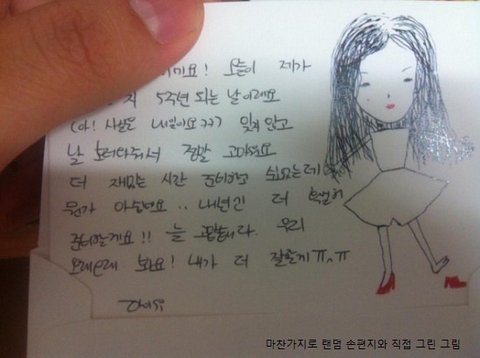 이에요! 오늘이 제가
지 5주년 되는 날이래요
(아! 사실은 내일이요ㅋㅋ) 잊지 않고
날 보러와줘서 정말 고마워요
더 재밌는 시간 준비하고 싶었는데
뭔가 아쉽네요.. 내년엔 더
준비할게요!! 늘 고맙습니다. 우리
오래오래 봐요! 내가 더 잘할게 ㅠㅅㅠ
마찬가지로 랜덤 손편지와 직접 그린 그림